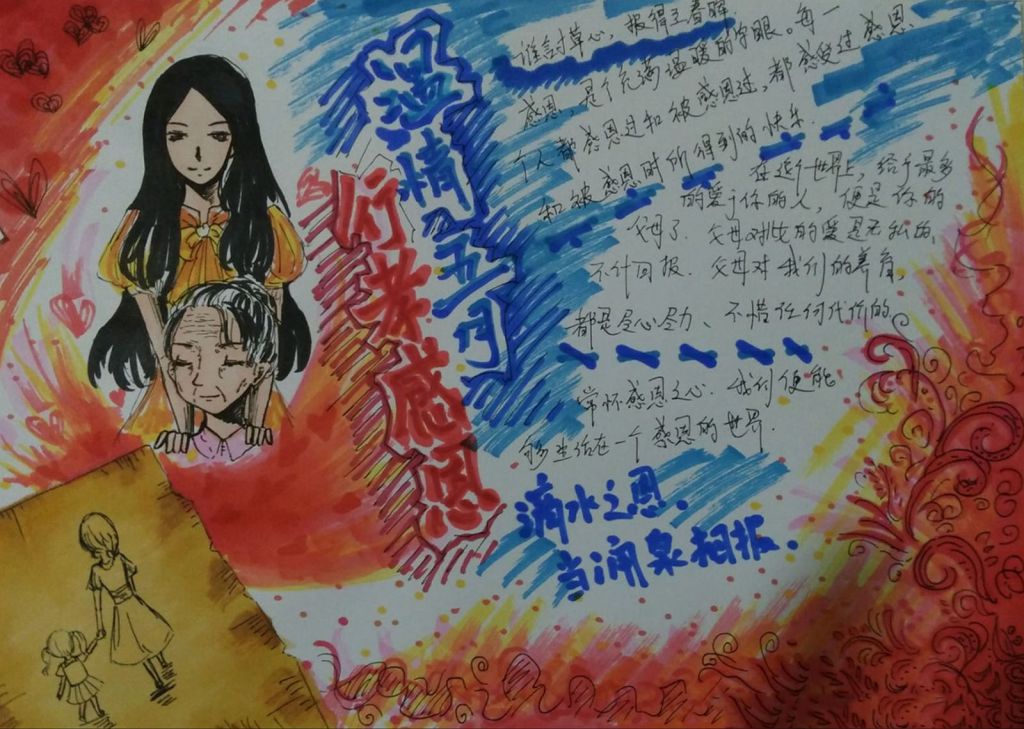 温情五月
行孝感恩
谁言寸草心，报得三春晖
感恩，是个充满温暖的字眼。每一
个人都感恩过和被感恩过，都感受过感恩
和被感恩时所得到的快乐.
在这个世界上，给予最多
的爱予你的人，便是你的
父母了.父母对我的爱是无私的、
不计回报.父母对我们的养育，
都是尽心尽力、不惜任何代价的
常怀感恩之心.我们便能
够生活在一个感恩的世界.
滴水之恩.
当涌泉相报.